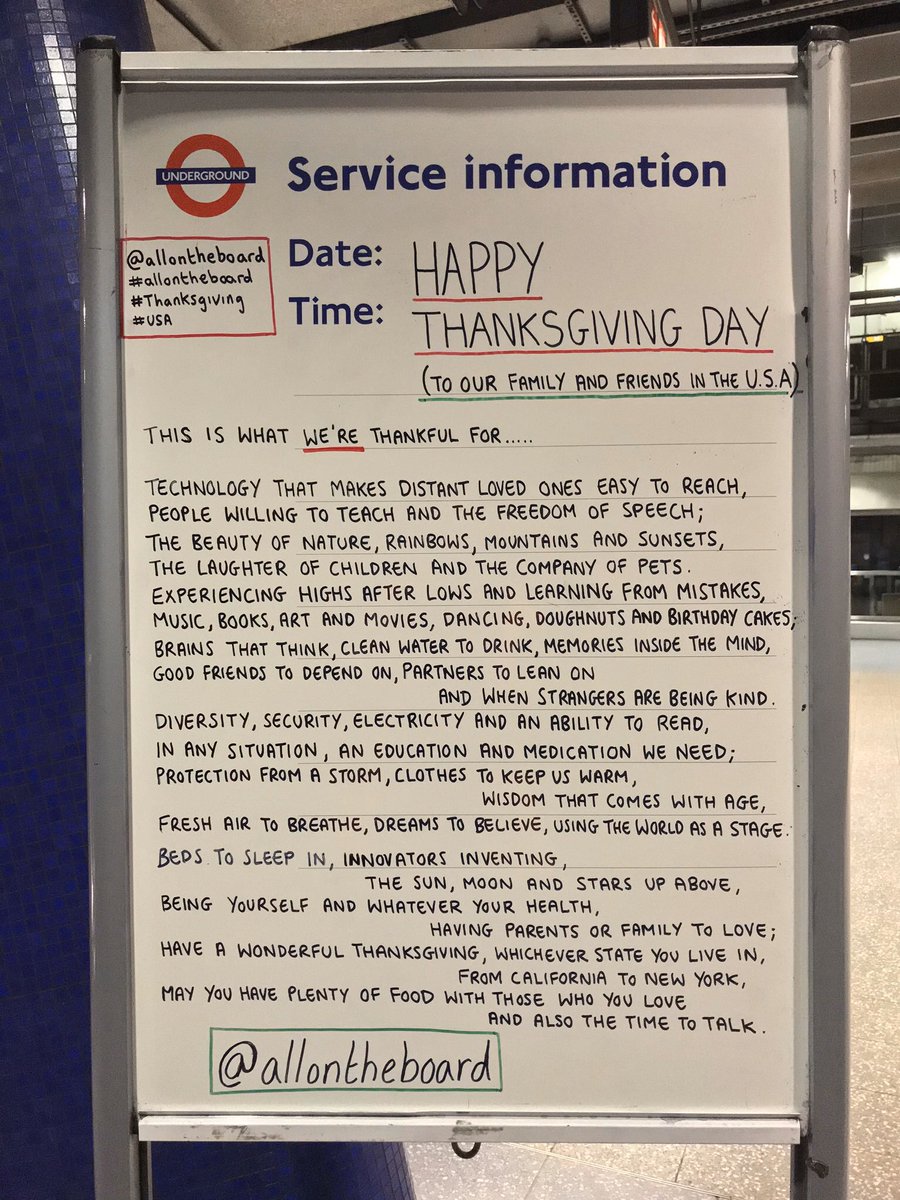 UNDERGROUND
Service information
@allontheboard
#allontheboard
#Thanksgiving
#USA
Date: HAPPY
Time: THANKSGIVING DAY
(TO OUR FAMILY AND FRIENDS IN THE U.S.A)
THIS IS WHAT WE'RE THANKFUL FOR.....
TECHNOLOGY THAT MAKES DISTANT LOVED ONES EASY TO REACH,
PEOPLE WILLING TO TEACH AND THE FREEDOM OF SPEECH;
THE BEAUTY OF NATURE, RAINBOWS, MOUNTAINS AND SUNSETS,
THE LAUGHTER OF CHILDREN AND THE COMPANY OF PETS.
EXPERIENCING HIGHS AFTER LOWS AND LEARNING FROM MISTAKES,
MUSIC, BOOKS, ART AND MOVIES, DANCING, DOUGHNUTS AND BIRTHDAY CAKES;
BRAINS THAT THINK, CLEAN WATER TO DRINK, MEMORIES INSIDE THE MIND,
GOOD FRIENDS TO DEPEND ON, PARTNERS TO LEAN ON
AND WHEN STRANGERS ARE BEING KIND.
DIVERSITY, SECURITY, ELECTRICITY AND AN ABILITY TO READ,
IN ANY SITUATION, AN EDUCATION AND MEDICATION WE NEED;
PROTECTION FROM A STORM, CLOTHES TO KEEP US WARM,
WISDOM THAT COMES WITH AGE,
FRESH AIR TO BREATHE, DREAMS TO BELIEVE, USING THE WORLD AS A STAGE.
BEDS TO SLEEP IN, INNOVATORS INVENTING,
THE SUN, MOON AND STARS UP ABOVE,
BEING YOURSELF AND WHATEVER YOUR HEALTH,
HAVING PARENTS OR FAMILY TO LOVE;
HAVE A WONDERFUL THANKSGIVING, WHICHEVER STATE YOU LIVE IN,
FROM CALIFORNIA TO NEW YORK,
MAY YOU HAVE PLENTY OF FOOD WITH THOSE WHO YOU LOVE
AND ALSO THE TIME TO TALK.
@allontheboard